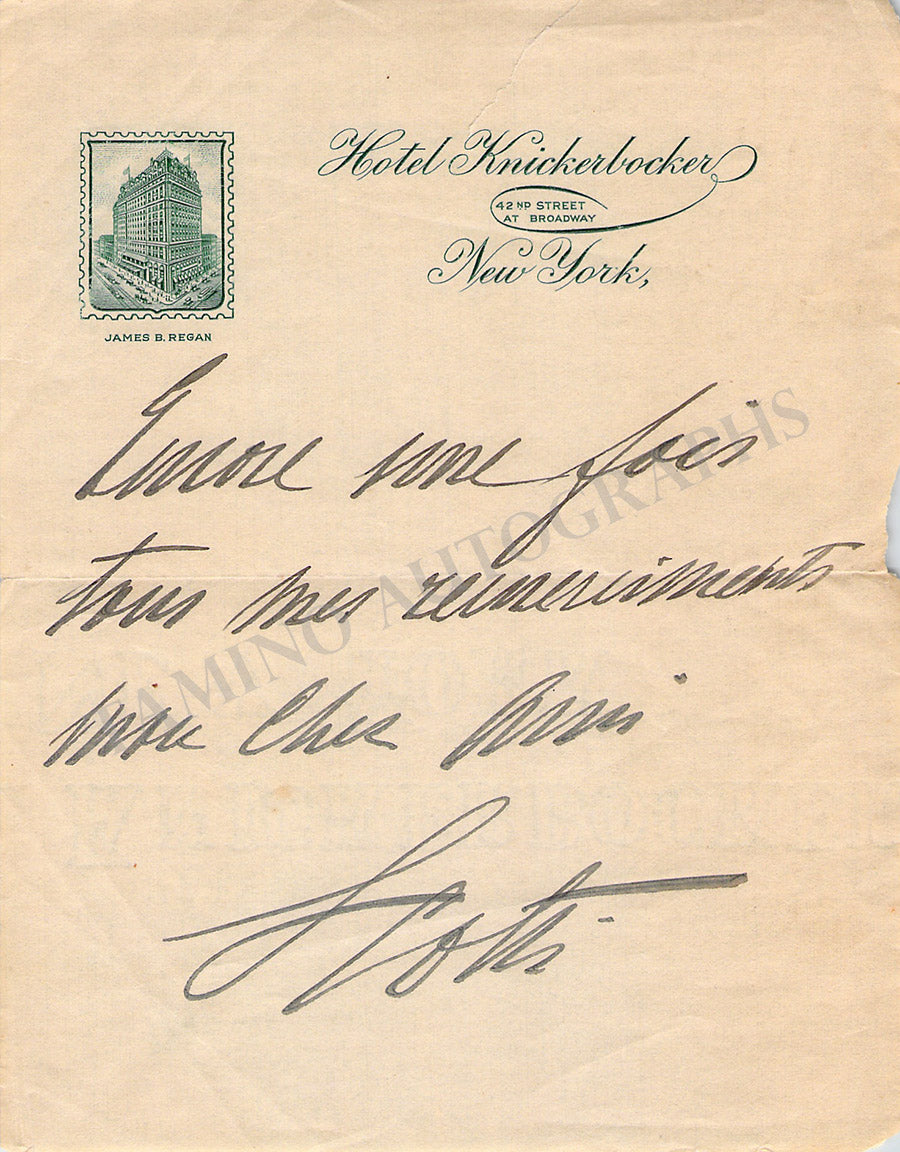 Hotel Knickerbocker
42ND STREET
AT BROADWAY
New York,
JAMES B. REGAN
Encore une fois
tous mes remerciments
mon cher Ami
TAMINO AUTOGRAPHS